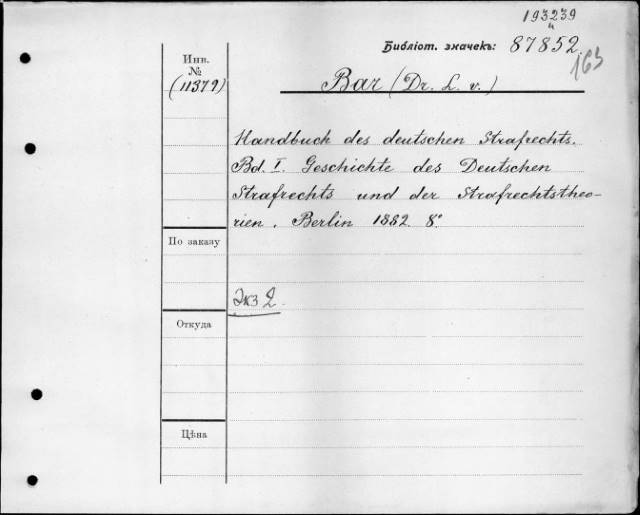 193239
и
Библіот. значекъ: 87852.
163
Инв.
№
(11379)
Bar (Dr. L. v.)
Handbuch des deutschen Strafrechts.
Bd. I. Geschichte des Deutschen
Strafrechts und der Strafrechtstheo-
rien. Berlin 1882. 8°
По заказу
Экз 2.
Откуда
Цѣна